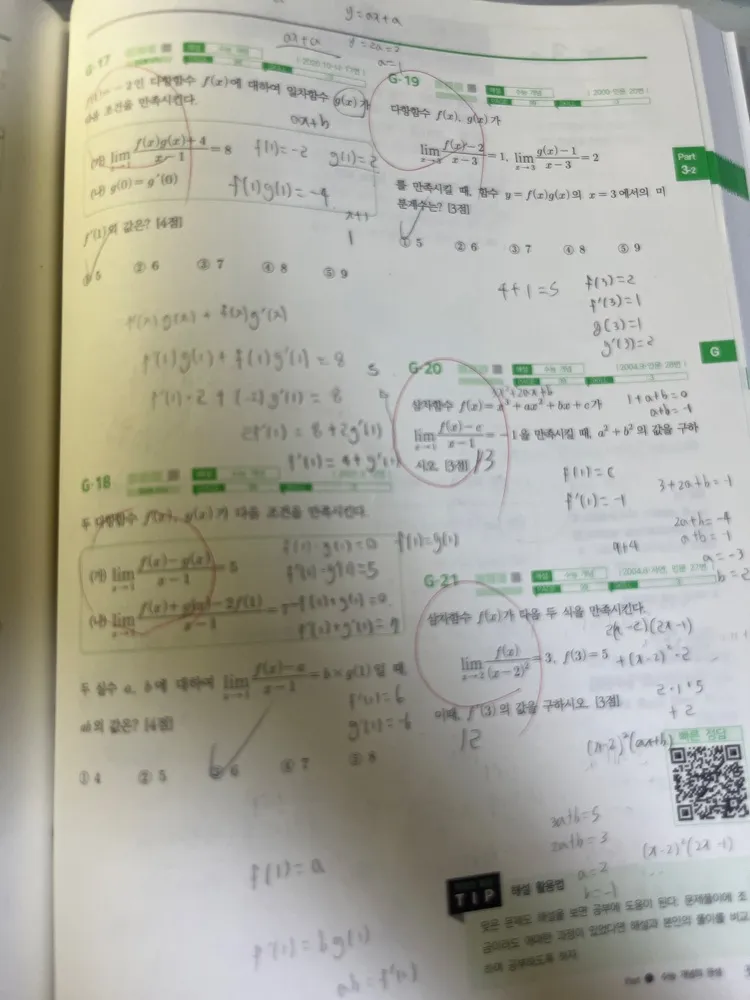 y=ax+a
ax+a
y=2a=2
a=1
G·17
수능 개념
f(1)=-2인 다항함수 f(x)에 대하여 일차함수 g(x)가
다음 조건을 만족시킨다.
ax+b
(가) lim x→1 f(x)g(x)+4 / x-1 = 8
f(1)=-2
g(1)=2
(나) g(0)=g'(0)
f(1)g(1)=-4
x+1
1
f'(1)의 값은? [4점]
① 5 ② 6 ③ 7 ④ 8 ⑤ 9
f'(x)g(x)+f(x)g'(x)
f'(1)g(1)+f(1)g'(1)=8
f'(1)·2+(-2)g'(1)=8
2f'(1)=8+2g'(1)
f'(1)=4+g'(1)
5
G·18
수능 개념
두 다항함수 f(x), g(x)가 다음 조건을 만족시킨다.
(가) lim x→1 f(x)-g(x) / x-1 = 5
f(1)-g(1)=0
f(1)=g(1)
(나) lim x→1 f(x)+g(x)-2f(1) / x-1 = 7
두 실수 a, b에 대하여 lim x→1 f(x)-a / x-1 = b×g(1)일 때,
ab의 값은? [4점]
f'(1)=6
① 4 ② 5 ③ 6 ④ 7 ⑤ 8
f(1)=a
f'(1)=bg(1)
ab=f'(1)
G·19
해설 수능 개념
다항함수 f(x), g(x)가
lim x→3 f(x)-2 / x-3 = 1, lim x→3 g(x)-1 / x-3 = 2
를 만족시킬 때, 함수 y=f(x)g(x)의 x=3에서의 미
분계수는? [3점]
① 5 ② 6 ③ 7 ④ 8 ⑤ 9
4+1=5
f(3)=2
f'(3)=1
g(3)=1
g'(3)=2
Part
3-2
G
G·20
해설 수능 개념
3x²+2ax+b
삼차함수 f(x)=x³+ax²+bx+c가
1+a+b=0
a+b=-1
lim x→1 f(x)-c / x-1 = -1을 만족시킬 때, a²+b²의 값을 구하
시오. [3점]
13
f(1)=c
f'(1)=-1
3+2a+b=-1
2a+b=-4
a+b=-1
a=-3
b=2
9+4
G·21
해설 수능 개념
삼차함수 f(x)가 다음 두 식을 만족시킨다.
2(x-2)(2x-1)
+(x-2)²·2
lim x→2 f(x) / (x-2)² = 3, f(3)=5
2·1·5
+2
이때, f'(3)의 값을 구하시오. [3점]
12
(x-2)²(ax+b)
빠른 정답
3a+b=5
2a+b=3
a=2
b=-1
(x-2)²(2x-1)
TIP
해설 활용법
맞은 문제도 해설을 보면 공부에 도움이 된다. 문제풀이에 조
금이라도 애매한 과정이 있었다면 해설과 본인의 풀이를 비교
하며 공부하도록 하자.